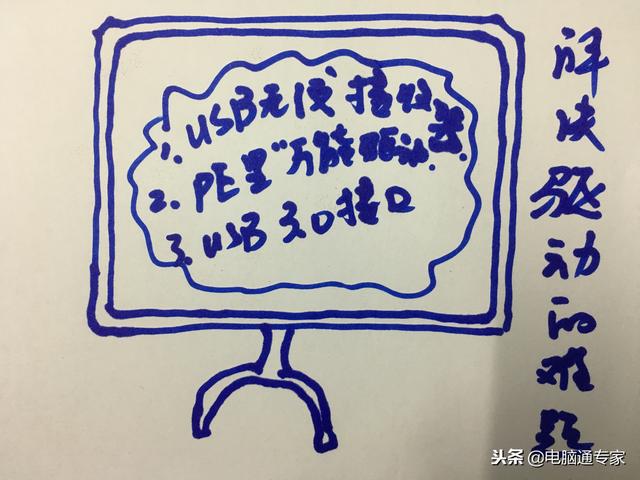 1. USB无线接收器
2. PE里"万能驱动
3. USB 3.0接口
解决驱动的难题
头条 @电脑通专家